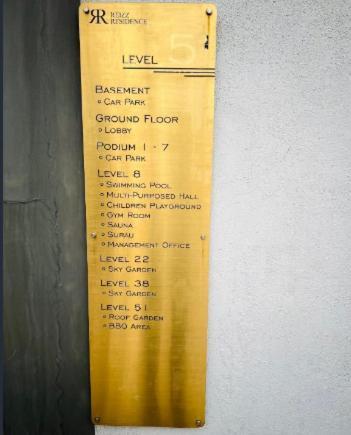 RR REIZZ
RESIDENCE
LEVEL 51
BASEMENT
CAR PARK
GROUND FLOOR
LOBBY
PODIUM 1 - 7
CAR PARK
LEVEL 8
SWIMMING POOL
MULTI-PURPOSED HALL
CHILDREN PLAYGROUND
GYM ROOM
SAUNA
SURAU
MANAGEMENT OFFICE
LEVEL 22
SKY GARDEN
LEVEL 38
SKY GARDEN
LEVEL 51
ROOF GARDEN
BBQ AREA